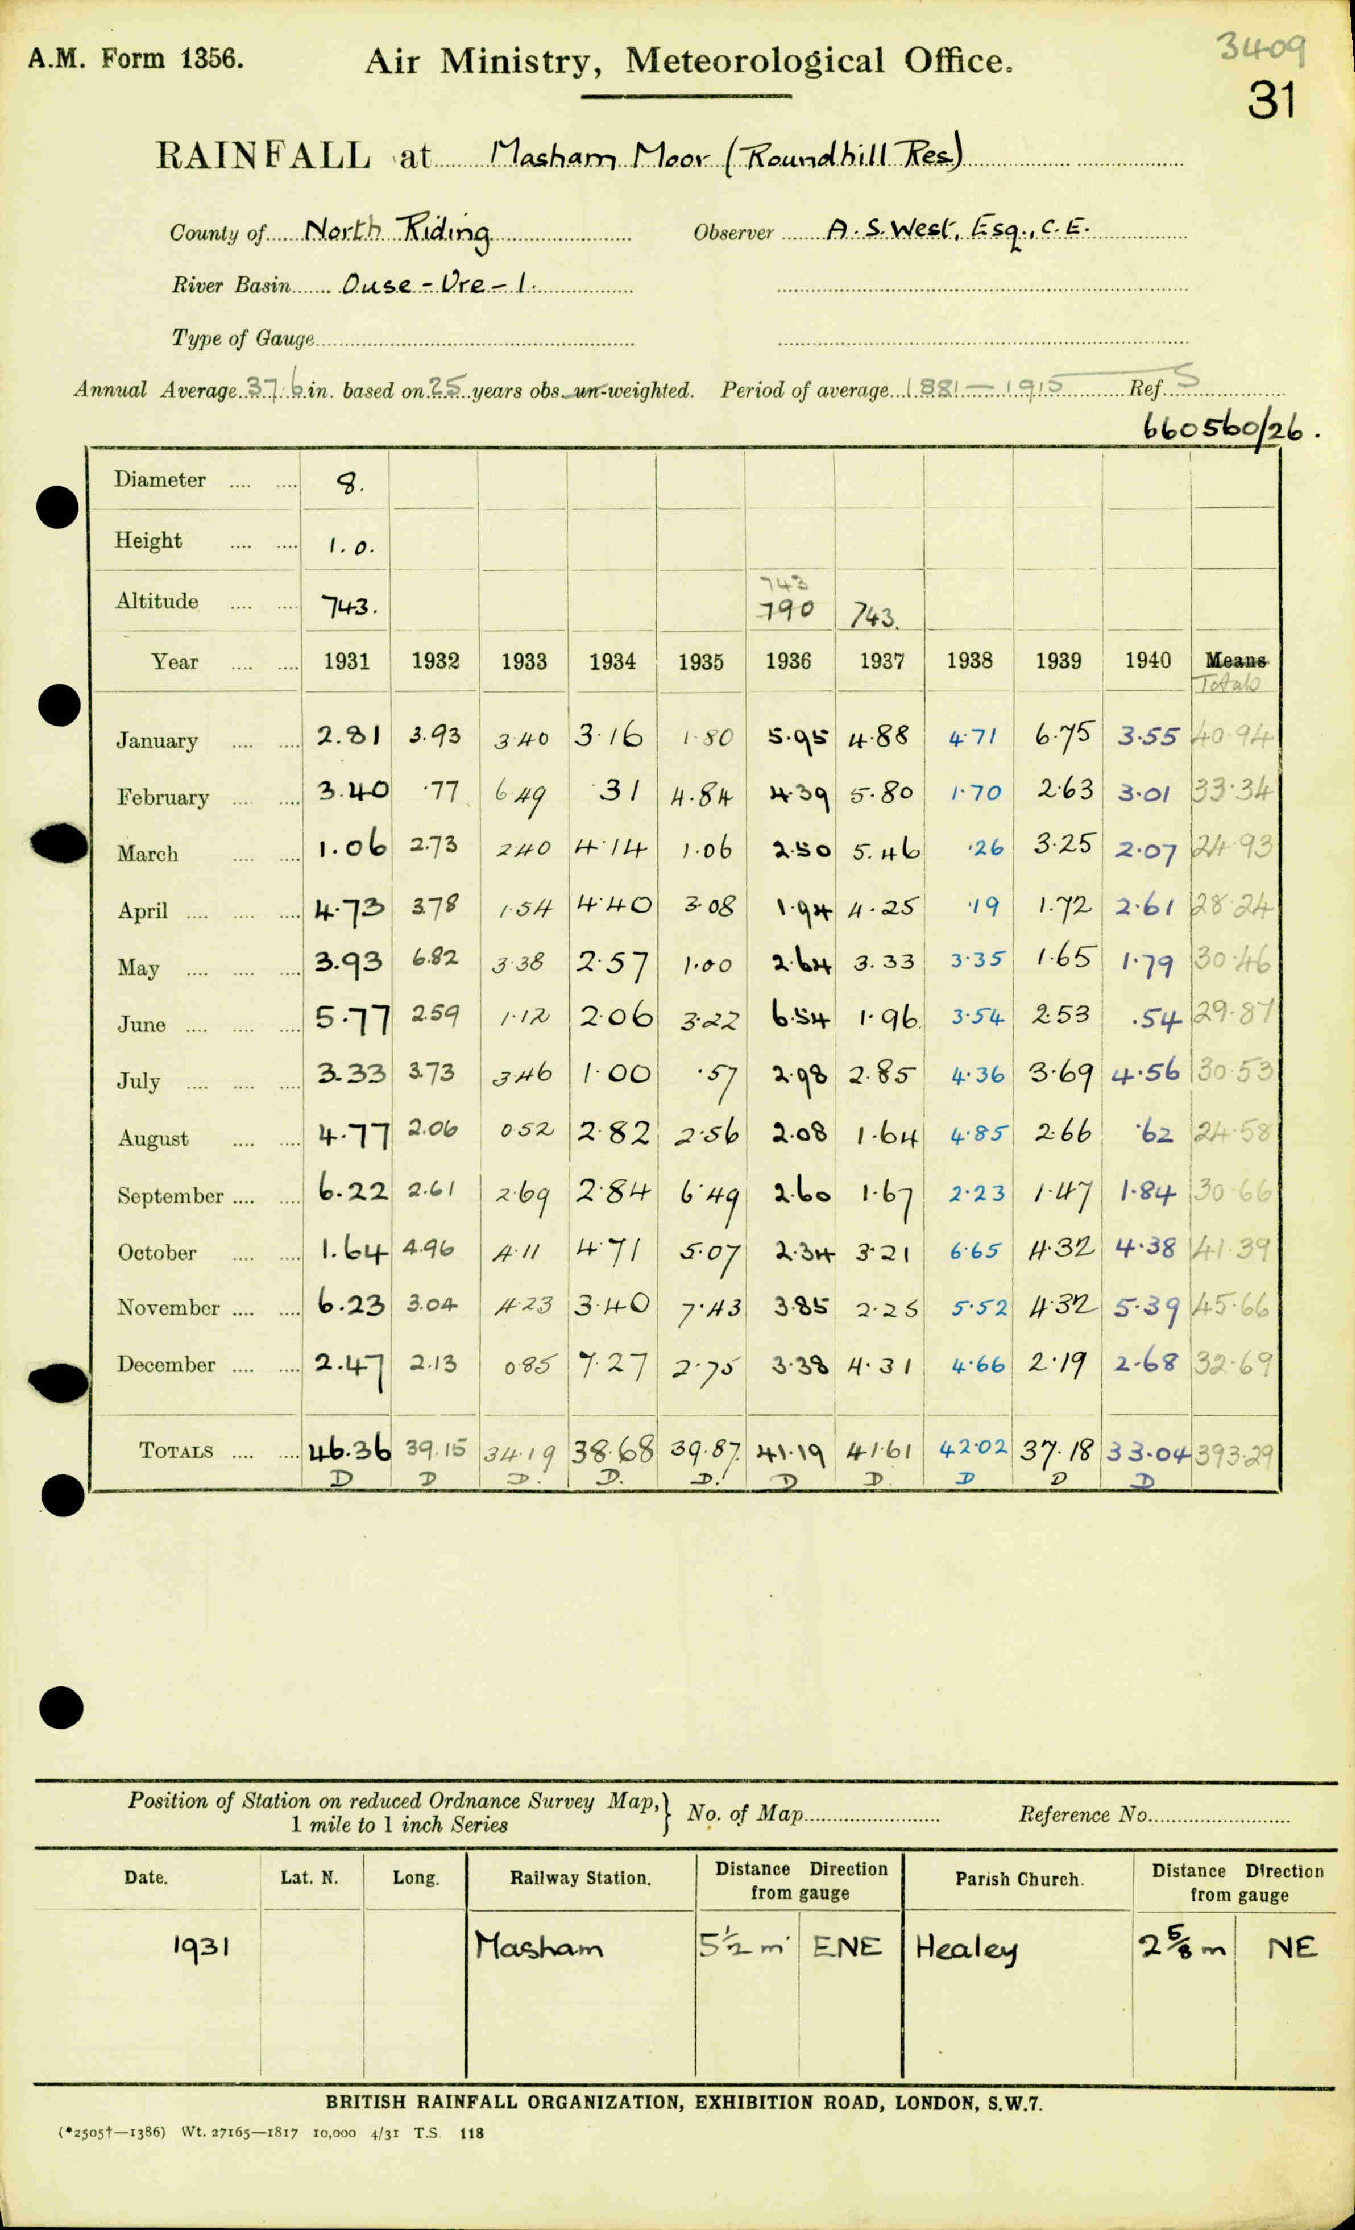 A.M. Form 1356.
Air Ministry, Meteorological Office.
3409
31
RAINFALL at Masham Moor (Roundhill Res)
County of North Riding Observer A. S. West, Esq., C.E.
River Basin Ouse - Ure - 1.
Type of Gauge
Annual Average 37.6 in. based on 25 years obs. un-weighted. Period of average 1881 - 1915 Ref. S
660560/26.
Diameter 8.
Height 1.0.
743
Altitude 743. 790 743.
Year 1931 1932 1933 1934 1935 1936 1937 1938 1939 1940 Means
Totals
January 2.81 3.93 3.40 3.16 1.80 5.95 4.88 4.71 6.75 3.55 40.94
February 3.40 .77 6.49 .31 4.84 4.39 5.80 1.70 2.63 3.01 33.34
March 1.06 2.73 2.40 4.14 1.06 2.50 5.46 .26 3.25 2.07 24.93
April 4.73 3.78 1.54 4.40 3.08 1.94 4.25 .19 1.72 2.61 28.24
May 3.93 6.82 3.38 2.57 1.00 2.64 3.33 3.35 1.65 1.79 30.46
June 5.77 2.59 1.12 2.06 3.22 6.54 1.96 3.54 2.53 .54 29.87
July 3.33 3.73 3.46 1.00 .57 2.98 2.85 4.36 3.69 4.56 30.53
August 4.77 2.06 0.52 2.82 2.56 2.08 1.64 4.85 2.66 .62 24.58
September 6.22 2.61 2.69 2.84 6.49 2.60 1.67 2.23 1.47 1.84 30.66
October 1.64 4.96 4.11 4.71 5.07 2.34 3.21 6.65 4.32 4.38 41.39
November 6.23 3.04 4.23 3.40 7.43 3.85 2.25 5.52 4.32 5.39 45.66
December 2.47 2.13 0.85 7.27 2.75 3.38 4.31 4.66 2.19 2.68 32.69
TOTALS 46.36 39.15 34.19 38.68 39.87 41.19 41.61 42.02 37.18 33.04 393.29
D D D. D. D. D D. D D D
Position of Station on reduced Ordnance Survey Map, } No. of Map Reference No.
1 mile to 1 inch Series
Date. Lat. N. Long. Railway Station. Distance Direction from gauge Parish Church. Distance Direction from gauge
1931 Masham 5½ m ENE Healey 2⅝ m NE
BRITISH RAINFALL ORGANIZATION, EXHIBITION ROAD, LONDON, S.W.7.
(*2505†—1386) Wt. 27165—1817 10,000 4/31 T.S. 118